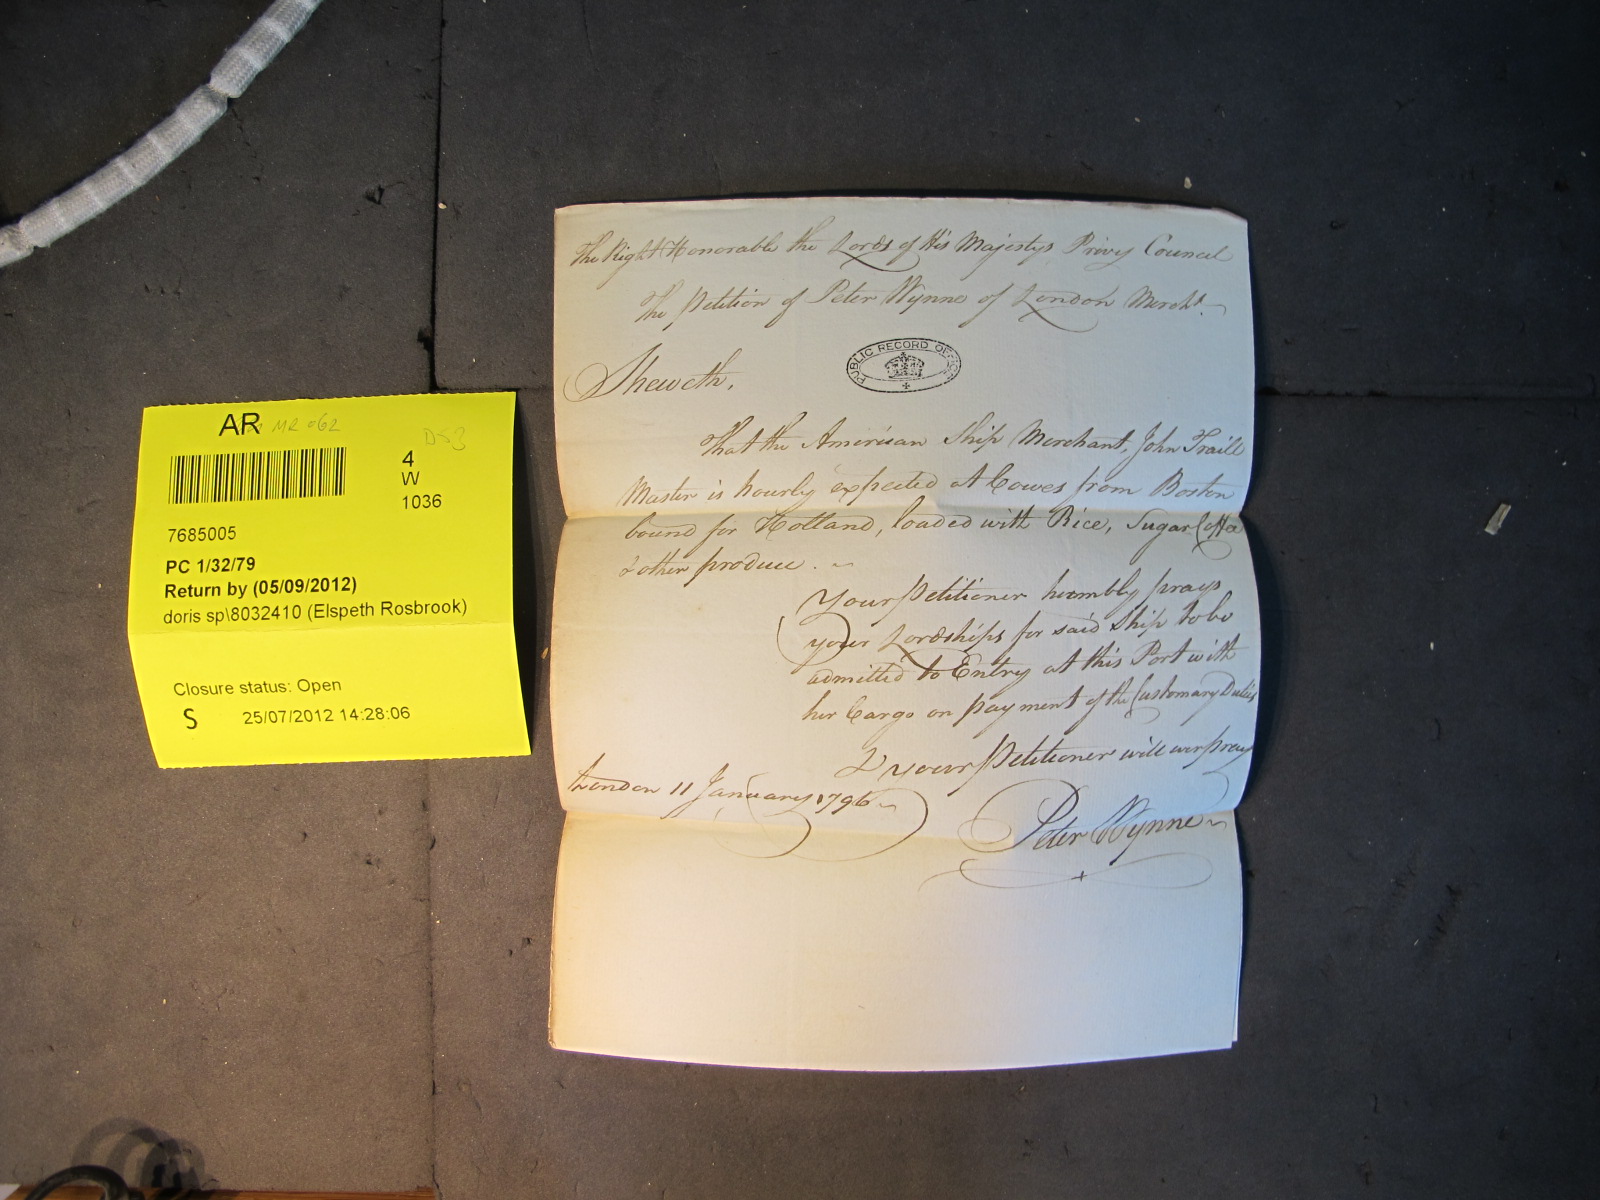 AR MR 062
DS3
4
W
1036
7685005
PC 1/32/79
Return by (05/09/2012)
doris sp\8032410 (Elspeth Rosbrook)
Closure status: Open
S 25/07/2012 14:28:06
The Right Honorable the Lords of His Majestys Privy Council
The Petition of Peter Wynne of London Mercht.
PUBLIC RECORD OFFICE
Sheweth,
That the American Ship Merchant, John Traill
Master is hourly expected at Cowes from Boston
bound for Holland, loaded with Rice, Sugar Coffee
& other produce.
Your Petitioner humbly prays
your Lordships for said Ship to be
admitted to Entry at this Port with
her Cargo on payment of the Customary Duties
& your Petitioner will ever pray
London 11 January 1796
Peter Wynne